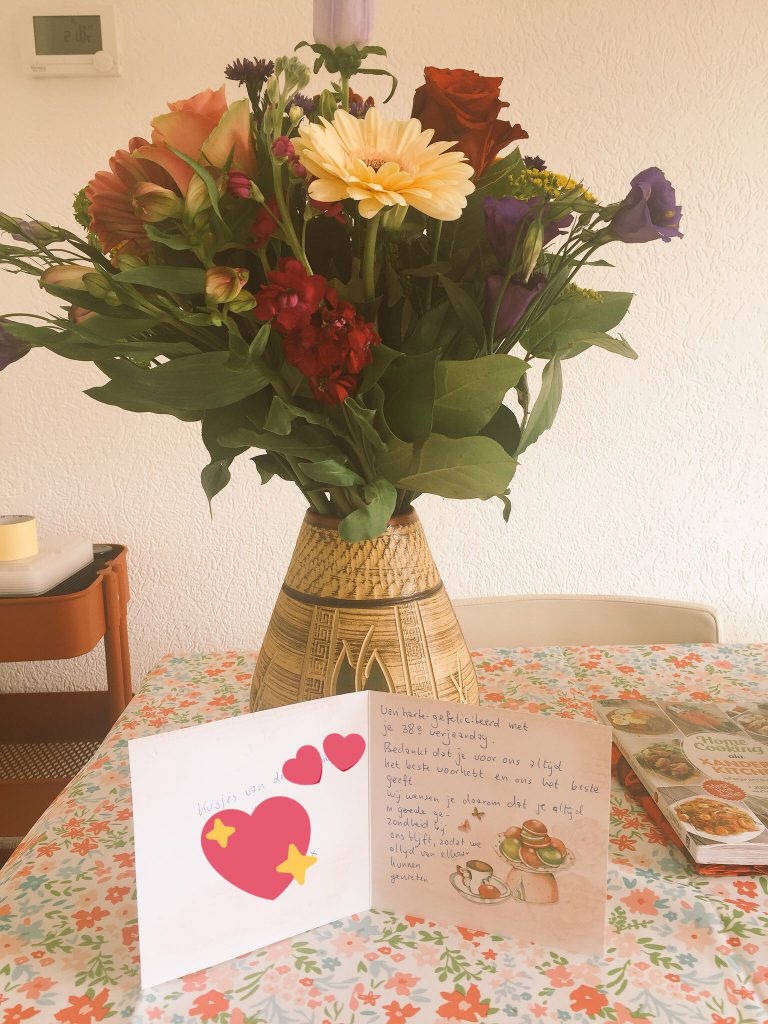 Kusjes van de
Van harte gefeliciteerd met
je 38e verjaardag.
Bedankt dat je voor ons altijd
het beste voorhebt en ons het beste
geeft.
Wij wensen je daarom dat je altijd
in goede ge-
zondheid bij
ons blijft, zodat we
altijd van elkaar
kunnen
genieten
Home
Cooking